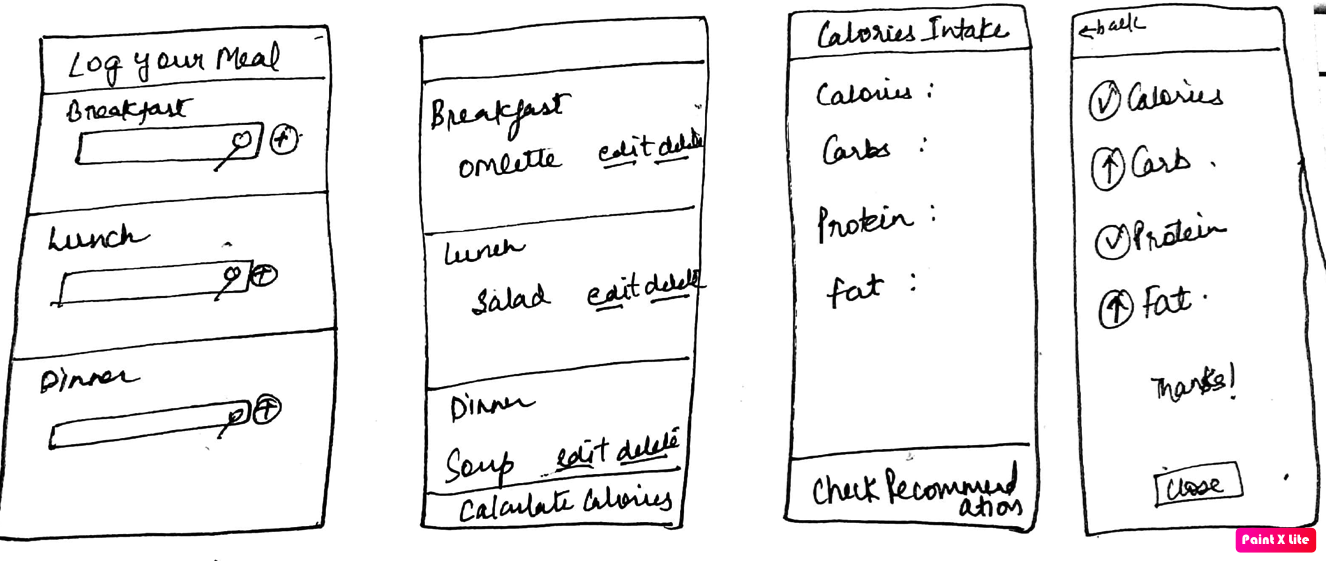 Log your Meal
Breakfast
Lunch
Dinner
Breakfast
Omlette edit delete
Lunch
Salad edit delete
Dinner
Soup edit delete
Calculate Calories
Calories Intake
Calories :
Carbs :
Protein :
fat :
Check Recommend
ation
←back
Calories
Carb.
Protein
Fat.
Thanks!
Close
Paint X Lite